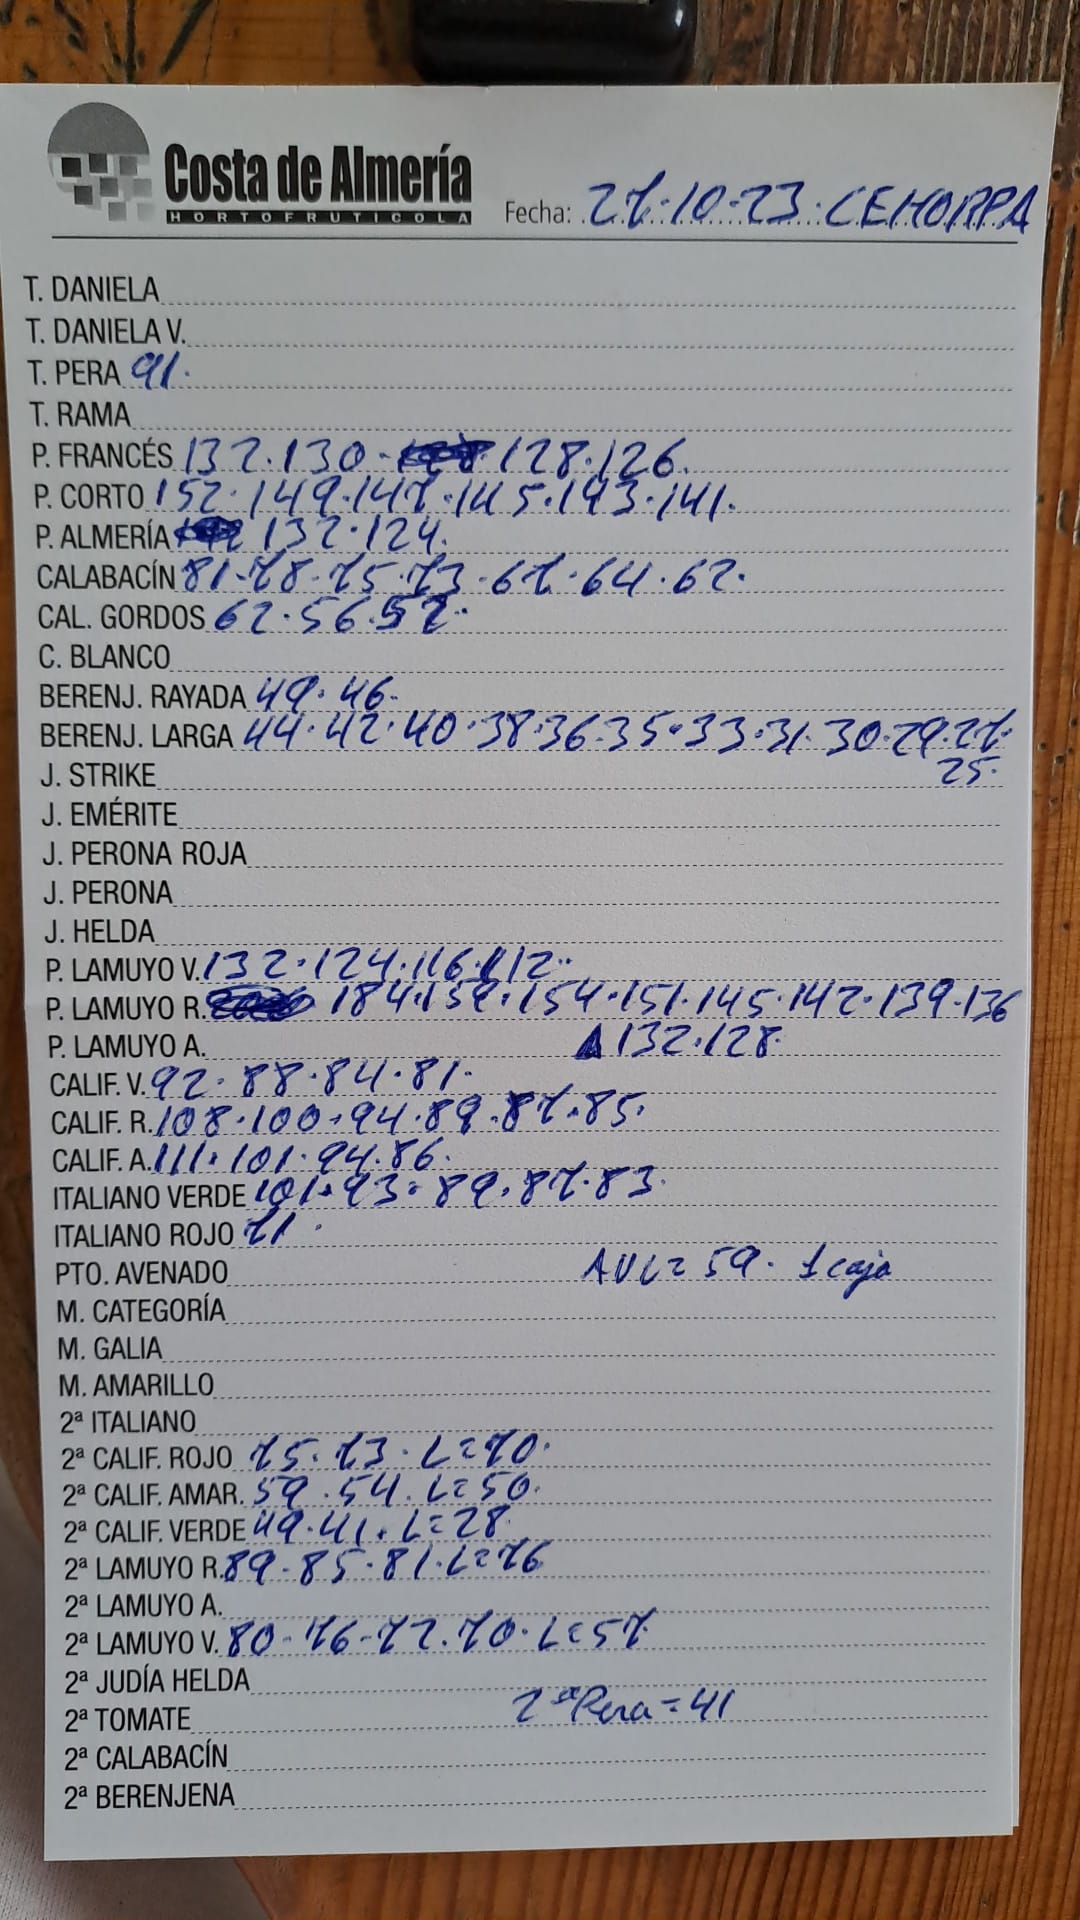 Costa de Almería
HORTOFRUTICOLA
Fecha: 27·10·23·CEHORPA
T. DANIELA
T. DANIELA V.
T. PERA 91.
T. RAMA
P. FRANCÉS 132·130· 128·126.
P. CORTO 152·149·147·145·143·141.
P. ALMERÍA 132·124.
CALABACÍN 81·78·75·73·67·64·62·
CAL. GORDOS 62·56·52·
C. BLANCO
BERENJ. RAYADA 49·46·
BERENJ. LARGA 44·42·40·38·36·35·33·31·30·29·27·
25·
J. STRIKE
J. EMÉRITE
J. PERONA ROJA
J. PERONA
J. HELDA
P. LAMUYO V. 132·124·116·112··
P. LAMUYO R. 184·159·154·151·145·142·139·136
132·128·
P. LAMUYO A.
CALIF. V. 92·88·84·81·
CALIF. R. 108·100·94·89·87·85·
CALIF. A. 111·101·94·86·
ITALIANO VERDE 101·93·89·87·83·
ITALIANO ROJO 71·
PTO. AVENADO AVL=59· 1 caja
M. CATEGORÍA
M. GALIA
M. AMARILLO
2ª ITALIANO
2ª CALIF. ROJO 75·73·L=70·
2ª CALIF. AMAR. 59·54·L=50·
2ª CALIF. VERDE 49·41·L=28
2ª LAMUYO R. 89·85·81·L=76
2ª LAMUYO A.
2ª LAMUYO V. 80·76·72·70·L=57
2ª JUDÍA HELDA
2ª Pera=41
2ª TOMATE
2ª CALABACÍN
2ª BERENJENA